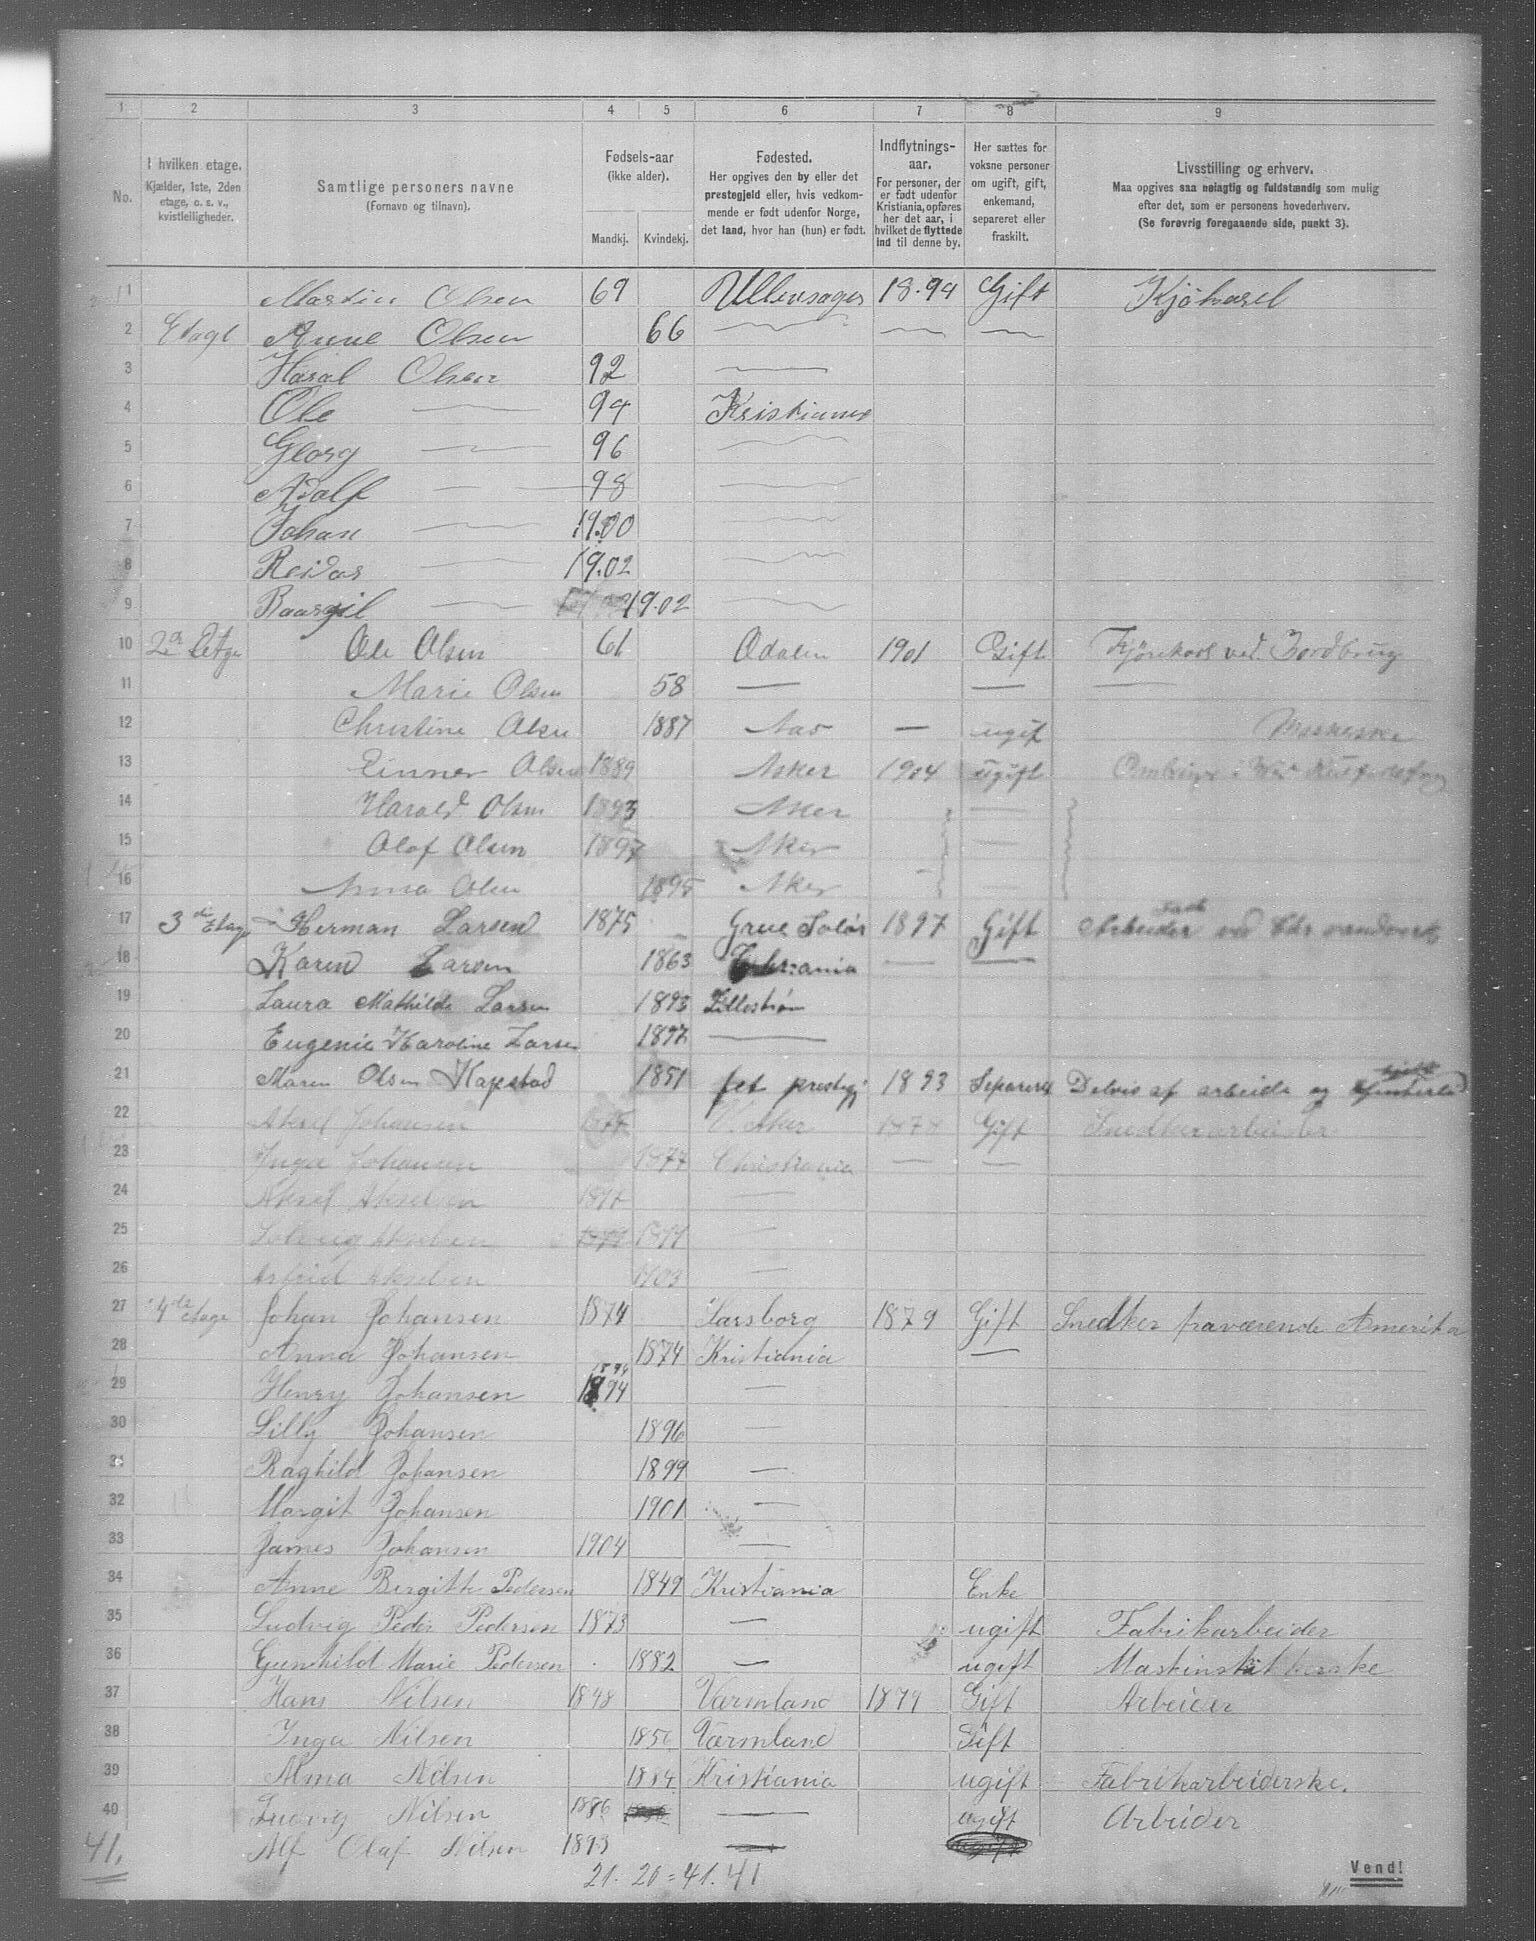 1 2 3 4 5 6 7 8 9
No.
I hvilken etage.
Kjælder, 1ste, 2den
etage, o. s. v.,
kvistleiligheder.
Samtlige personers navne
(Fornavn og tilnavn).
Fødsels-aar
(ikke alder).
Mandkj. Kvindekj.
Fødested.
Her opgives den by eller det
prestegjeld eller, hvis vedkom-
mende er født udenfor Norge,
det land, hvor han (hun) er født.
Indflytnings-
aar.
For personer, der
er født udenfor
Kristiania, opføres
her det aar, i
hvilket de flyttede
ind til denne by.
Her sættes for
voksne personer
om ugift, gift,
enkemand,
separeret eller
fraskilt.
Livsstilling og erhverv.
Maa opgives saa nøiagtig og fuldstændig som mulig
efter det, som er personens hovederhverv.
(Se forøvrig foregaaende side, punkt 3).
1 Martin Olsen 69 Ullensager 18.94 Gift Kjøkarel
2 Etage Anne Olsen 66 — — —
3 Haral Olsen 92 —
4 Ole — 94 Kristiania
5 Georg — 96 —
6 Adolf — 98 —
7 Johan — 19.00 —
8 Reidar — 19.02 —
9 — 19.02 —
10 2a Etge Ole Olsen 61 Odalen 1901 Gift Kjørekarl ved Jordbrug
11 Marie Olsen 58 — — —
12 Christine Olsen 1887 — ugift
13 Einner Olsen 1889 Asker 1904 ugift
14 Harald Olsen 1893 Asker —
15 Olaf Olsen 1897 Aker —
16 Anna Olsen 1895 Aker —
17 3die Etage Herman Larsen 1875 Grue Solør 1897 Gift Arbeider ved
18 Karen Larsen 1863 — —
19 Laura Mathilde Larsen 1893 Lillestrøm
20 Eugenie Karoline Larsen 1897 —
21 Maren Olsen Kapstad 1851 fet prestegj 1893 Separeret Delvis af arbeide og
22 Aksel Johansen 1877 V. Aker 1878 Gift Snedkerarbeider
23 Inga Johansen 1877 Christiania — —
24 Aksel Akselsen 1897 —
25 Solveig Akselsen 1899 —
26 Astrid Akselsen 1903 —
27 4de etage Johan Johansen 1874 Sarsborg 1879 Gift Snedker fraværende Amerika
28 Anna Johansen 1874 Kristiania —
29 Henry Johansen 1894 1894 —
30 Lilly Johansen 1896 —
31 Raghild Johansen 1899 —
32 Margit Johansen 1901 —
33 James Johansen 1904 —
34 Anne Birgitte Pedersen 1849 Kristiania Enke
35 Ludvig Peder Pedersen 1873 — ugift Fabrikarbeider
36 Gunhild Marie Pedersen 1882 — ugift
37 Hans Nilsen 1848 Varmland 1879 Gift Arbeider
38 Inga Nilsen 1856 Værmland Gift
39 Alma Nilsen 1884 Kristiania ugift Fabrikarbeiderske.
40 Ludvig Nilsen 1886 — ugift Arbeider
41. Alf Olaf Nilsen 1893 —
21. 20 = 41. 41
Vend!